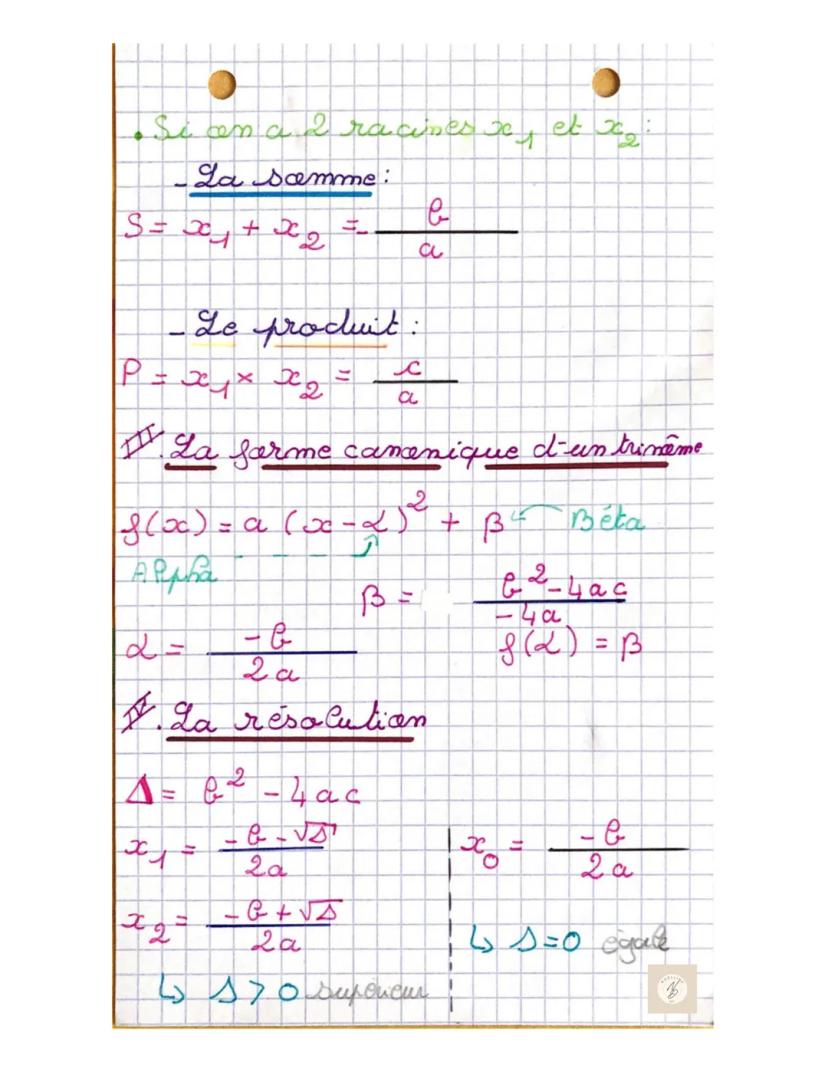 . Si on a 2 racines x₁ et x₂ :
- La somme :
S = x₁ + x₂ = - b/a
- Le produit :
P = x₁ × x₂ = c/a
III. La forme canonique d'un trinôme
f(x) = a (x - α)² + β ← Béta
Alpha
β = b² - 4ac / -4a
α = -b / 2a
f(α) = β
IV. La résolution
Δ = b² - 4ac
x₁ = -b - √Δ / 2a
x₀ = -b / 2a
x₂ = -b + √Δ / 2a
↳ Δ = 0 égale
↳ Δ > 0 supérieur